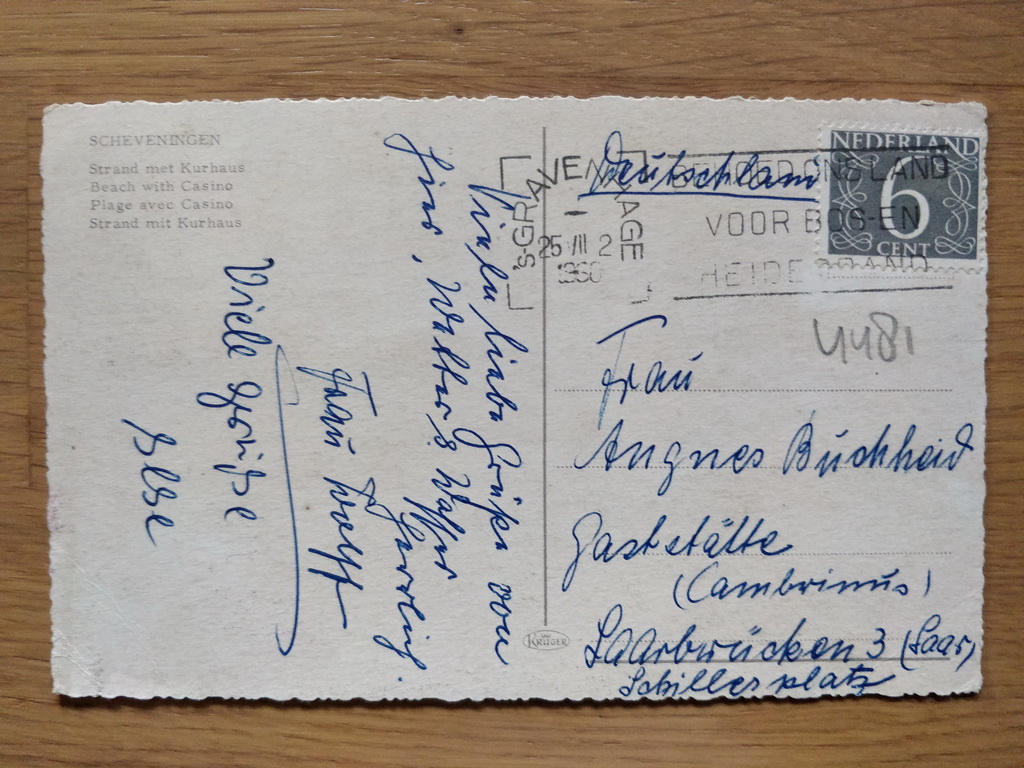 SCHEVENINGEN
Strand met Kurhaus
Beach with Casino
Plage avec Casino
Strand mit Kurhaus
Viele liebe Grüße von
hier, Walter & 
Frau Wolff
Viele Grüße
Else
's-GRAVENHAGE
25 VII 2
1960
VOOR BOS-EN
NEDERLAND
6
CENT
Deutschland
4481
Frau
Angnes Buchheid
Gaststätte
(Cambrinus)
Saarbrücken 3 (Saar)
Schillerplatz
KRÜGER